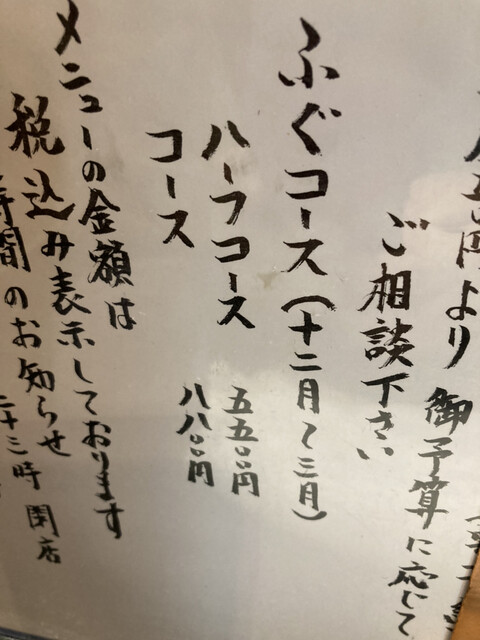 五〇円より 御予算に応じて
ご相談下さい
ふぐコース（十二月〜三月）
ハーフコース 五五〇〇円
コース 八八〇〇円
メニューの金額は
税込み表示しております
時間のお知らせ
二十三時 閉店